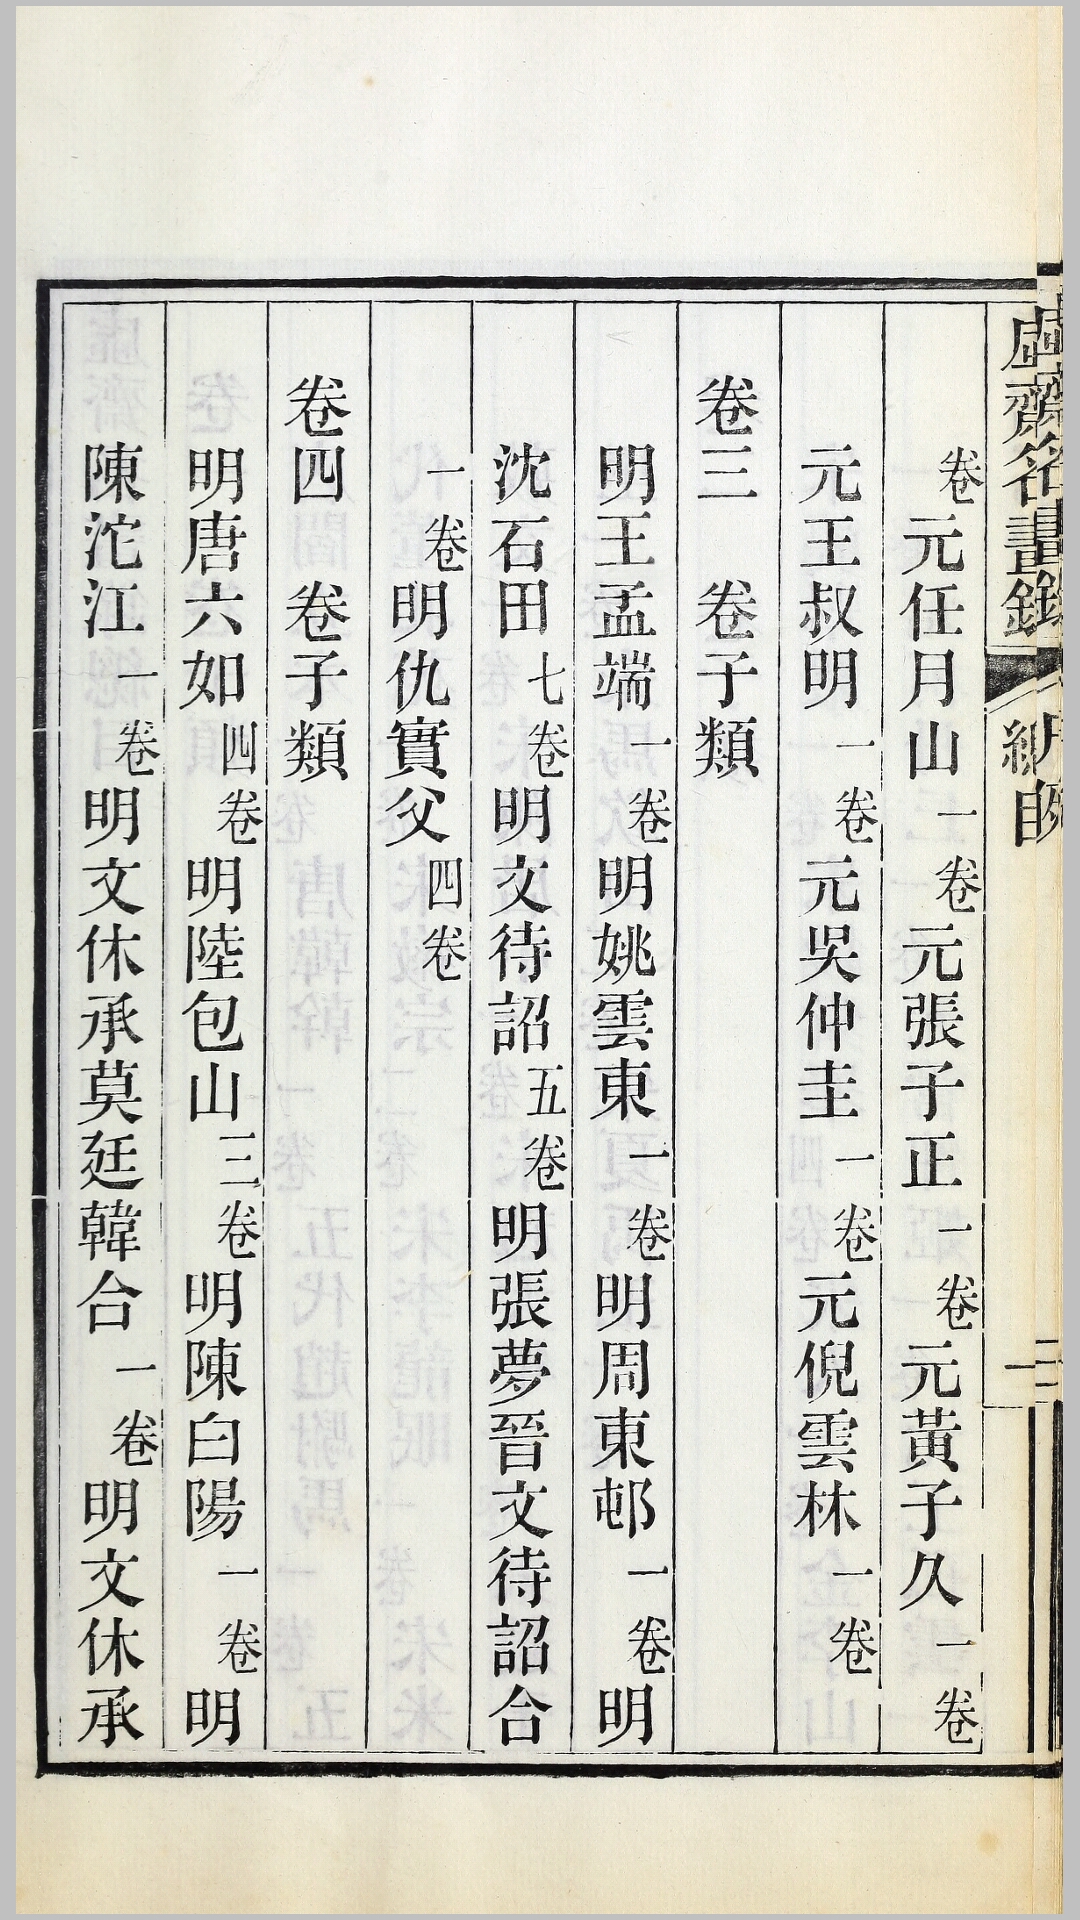 虛齋名畫錄 總目 二
卷元任月山一卷元張子正一卷元黃子久一卷
元王叔明一卷元吳仲圭一卷元倪雲林一卷
卷三 卷子類
明王孟端一卷明姚雲東一卷明周東邨一卷明
沈石田七卷明文待詔五卷明張夢晉文待詔合
一卷明仇實父四卷
卷四 卷子類
明唐六如四卷明陸包山三卷明陳白陽一卷明
陳沱江一卷明文休承莫廷韓合一卷明文休承